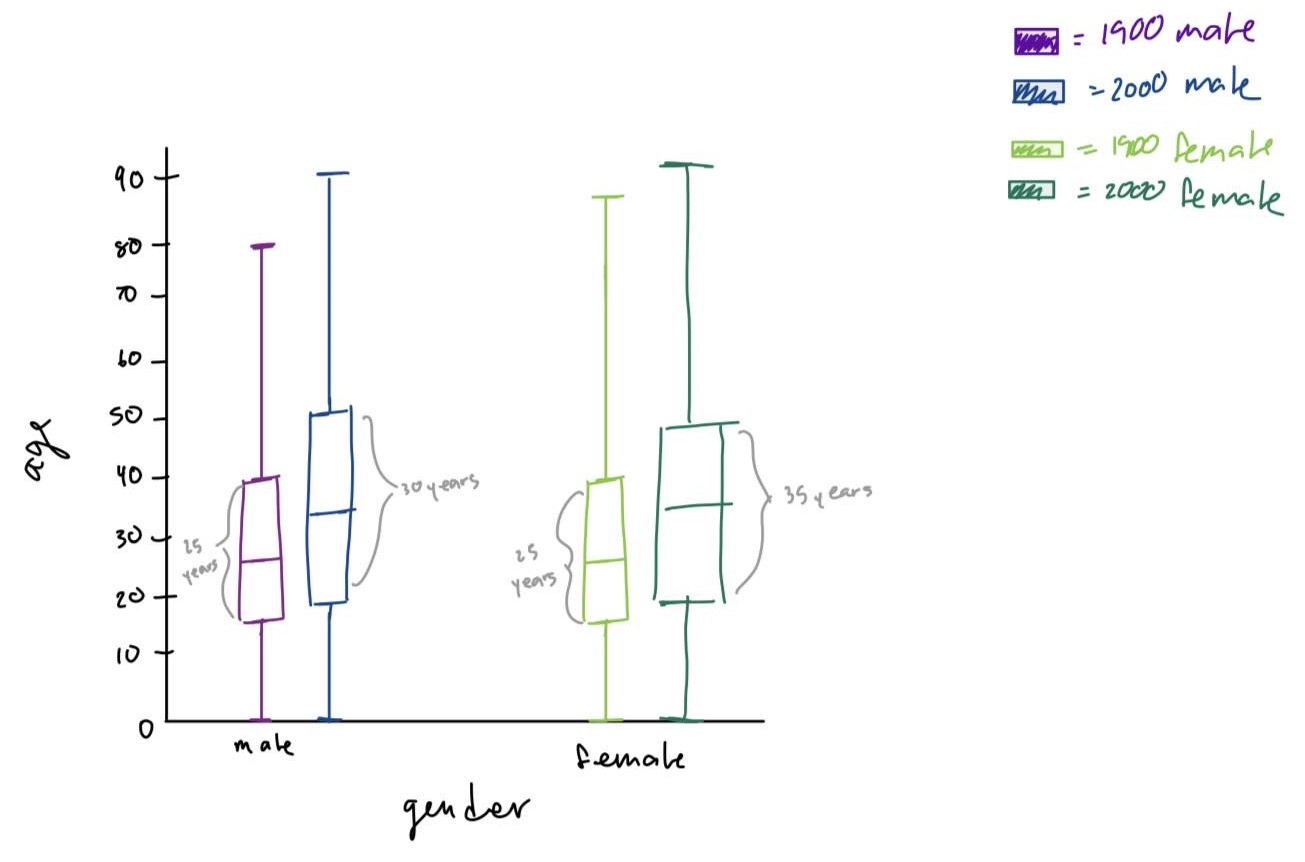 = 1900 male
= 2000 male
= 1900 female
= 2000 female
90
80
70
60
50
40
30
20
10
0
age
25
years
30 years
25
years
35 years
male
female
gender